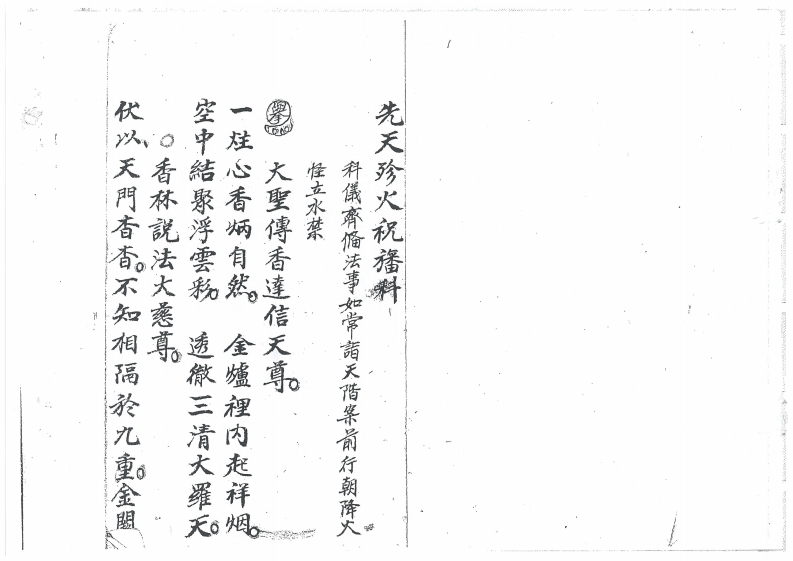 先天殄火祝旛科
科儀齊俻法事如常詣天階案前行朝降火
怪立水禁
舉 大聖傳香達信天尊。
一炷心香炳自然。 金爐裡内起祥烟。
空中結聚浮雲彩。 透徹三清大羅天。
○香林説法大慈尊。
伏以、天門杳杳。不知相隔於九重。金闕